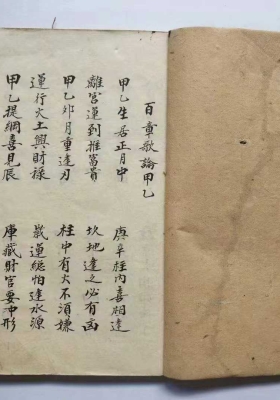 百章歌論甲乙
甲乙生居正月中 庚辛柱内喜相逢
離宮運到推富貴 坎地逢之必有凶
甲乙卯月重逢刃 柱中有火不須嫌
運行火土興財祿 歲運總怕逢水源
甲乙提綱喜見辰 庫藏財官要冲形